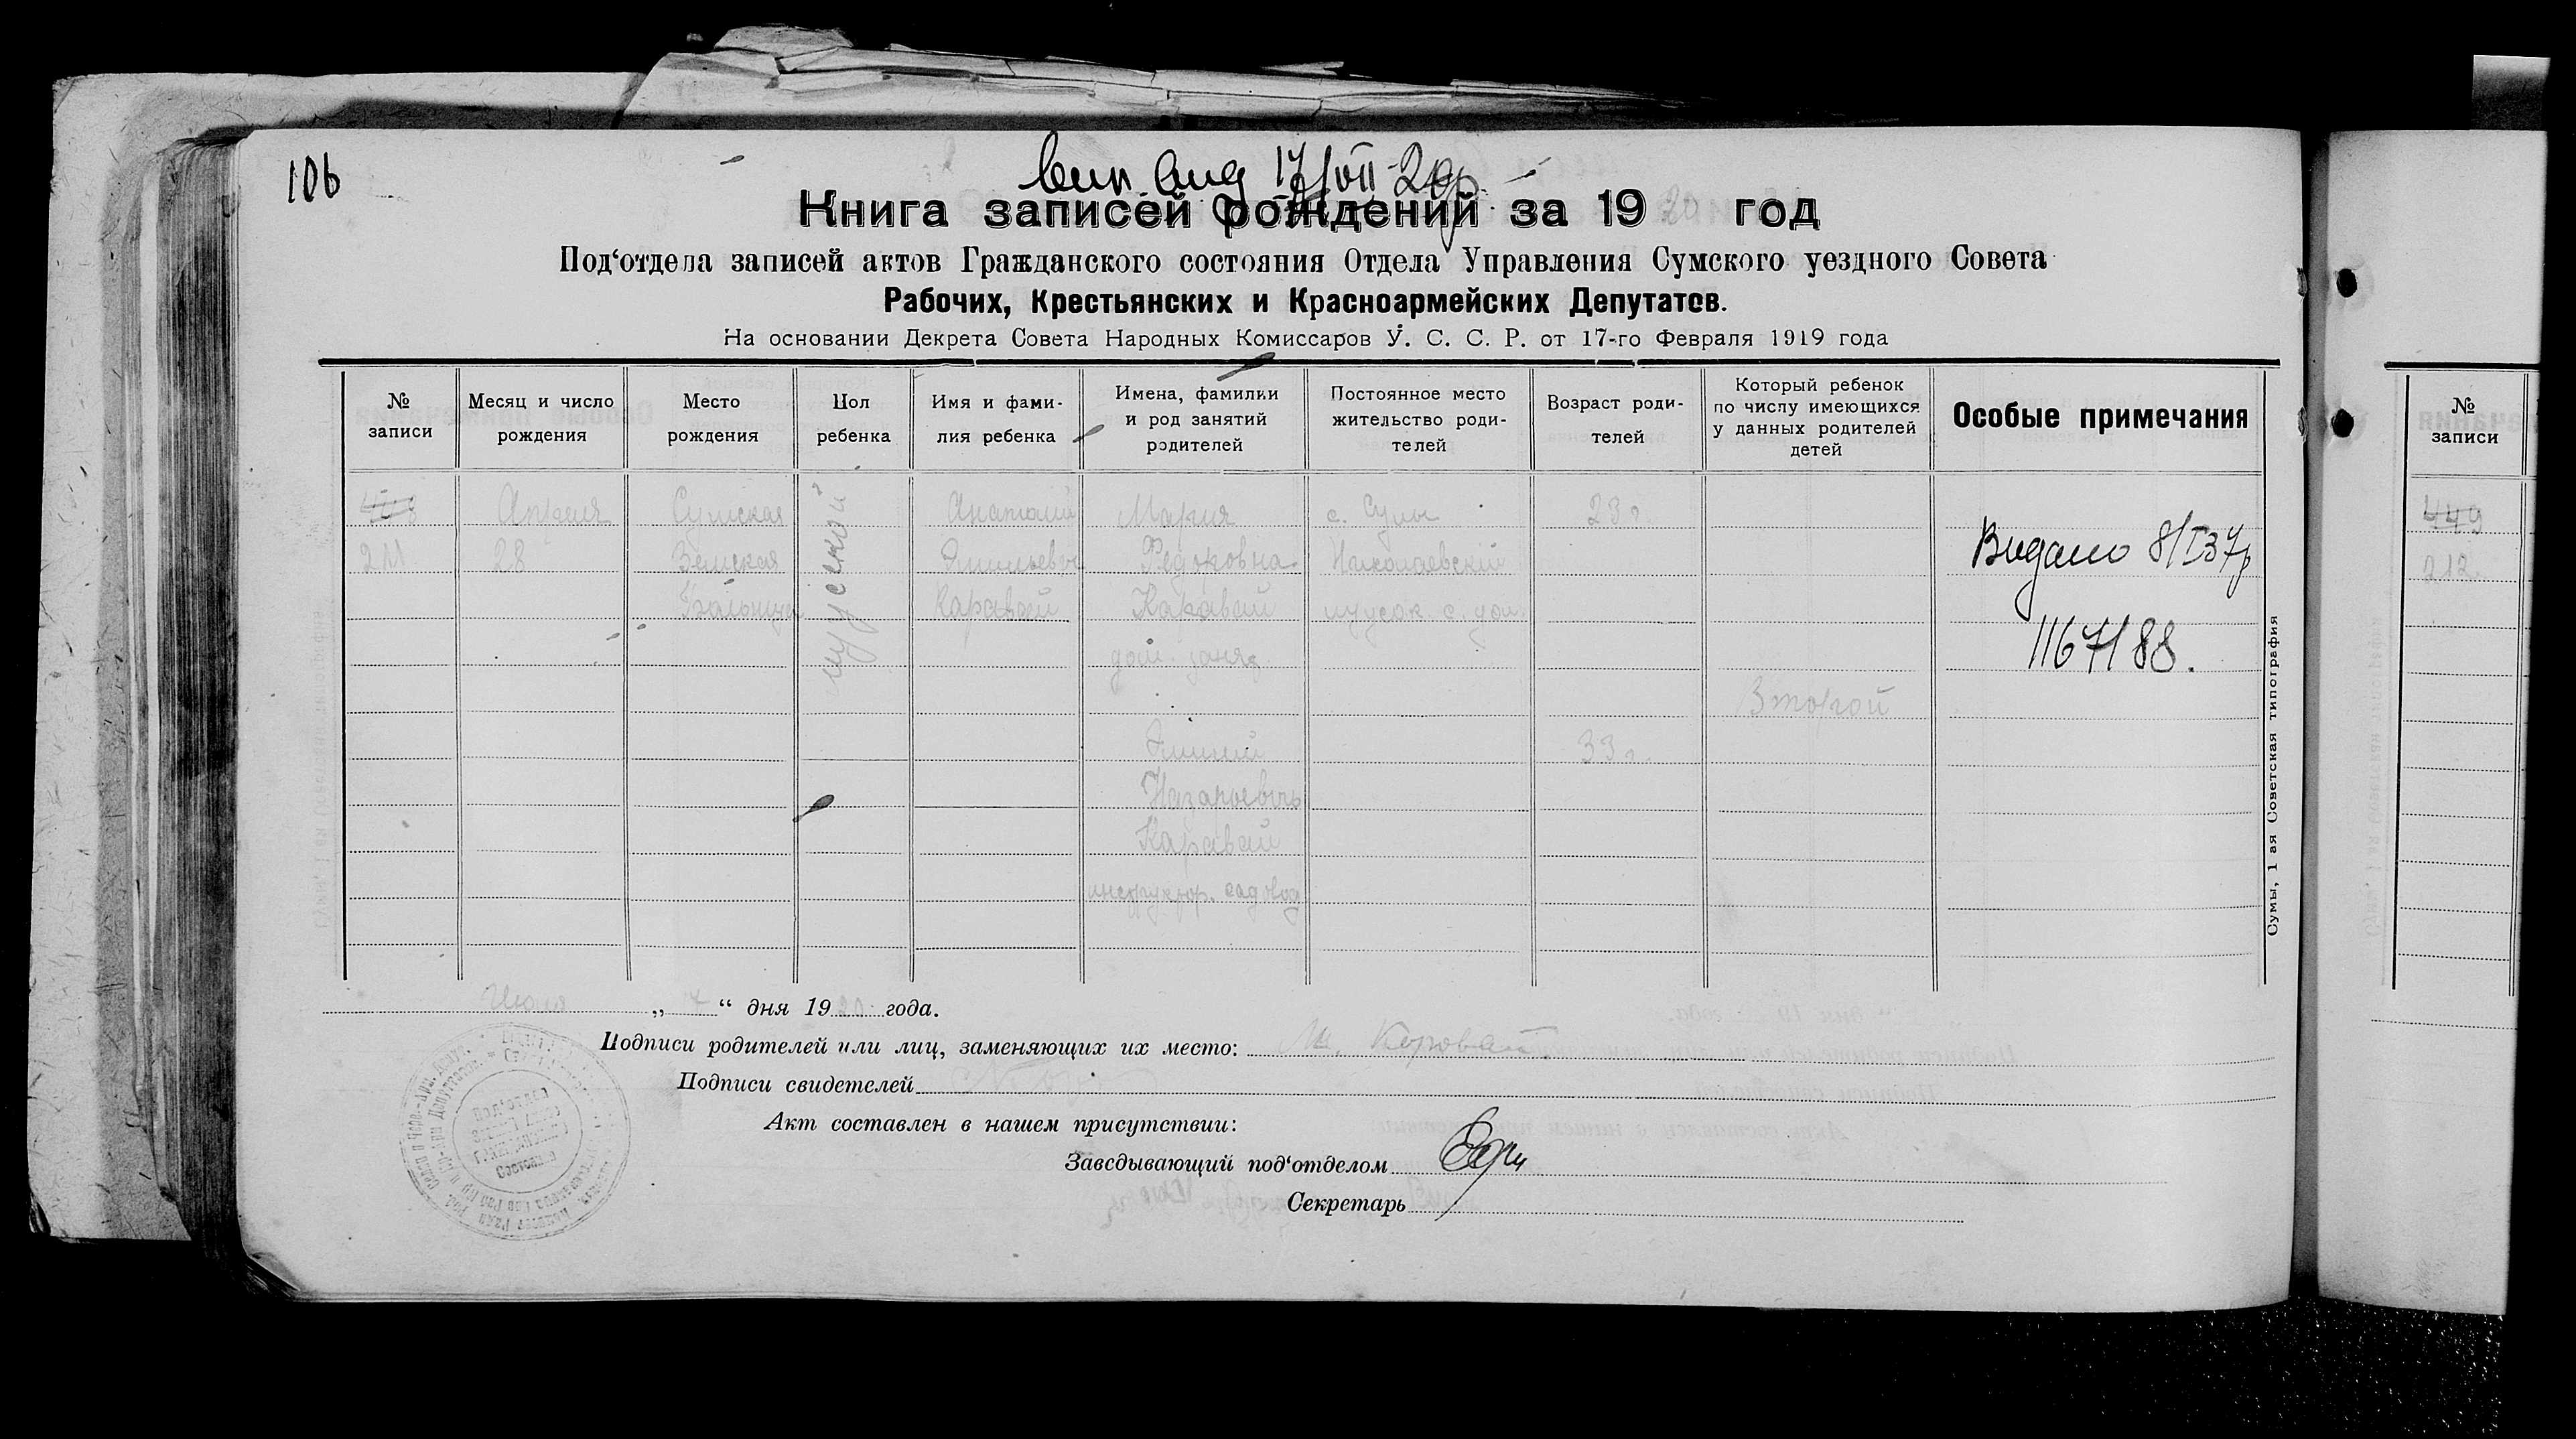 106
вип. вид 17/VII 20р.
Книга записей рождений за 1920 год
Под‘отдела записей актов Гражданского состояния Отдела Управления Сумского уездного Совета
Рабочих, Крестьянских и Красноармейских Депутатов.
На основании Декрета Совета Народных Комиссаров У. С. С. Р. от 17-го Февраля 1919 года
№ записи
Месяц и число рождения
Место рождения
Пол ребенка
Имя и фами-
лия ребенка
Имена, фамилии
и род занятий
родителей
Постоянное место
жительство роди-
телей
Возраст роди-
телей
Который ребенок
по числу имеющихся
у данных родителей
детей
Особые примечания
211
Апреля
28
Сумская
Земская
Больница
мужской
Анатолий
Эмильевич
Каравай
Мария
Федоровна
Каравай
дом. занят.
Эмилий
Назарьевич
Каравай
инструктор. садовод
с. Сумы
Николаевский
23 г.
33 г.
Второй
Видано 8/I 37р
1167188.
Сумы, 1 ая Советская типография
Июля „ 7 “ дня 1920 года.
Подписи родителей или лиц, заменяющих их место: М. Коровай
Подписи свидетелей
Акт составлен в нашем присутствии:
Заведывающий под‘отделом
Секретарь
Под‘отдел
Записи
Гражданского
Состояния
№
записи
449
212